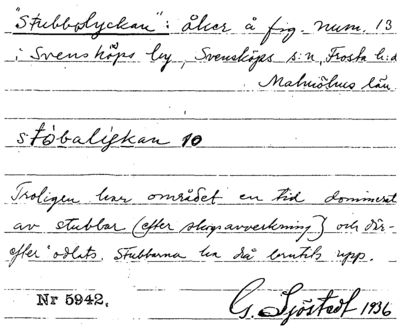 "Stubbalyckan": åker å fig. num. 13
i Svensköps by, Svensköps s:n, Frosta h:d
Malmöhus län.
støbalyskan 10
Troligen har området en tid dominerat
av stubbar (efter skogsavverkning) och där-
efter odlats. Stubbarna ha då brutits upp.
Nr 5942.
G. Sjöstedt 1936